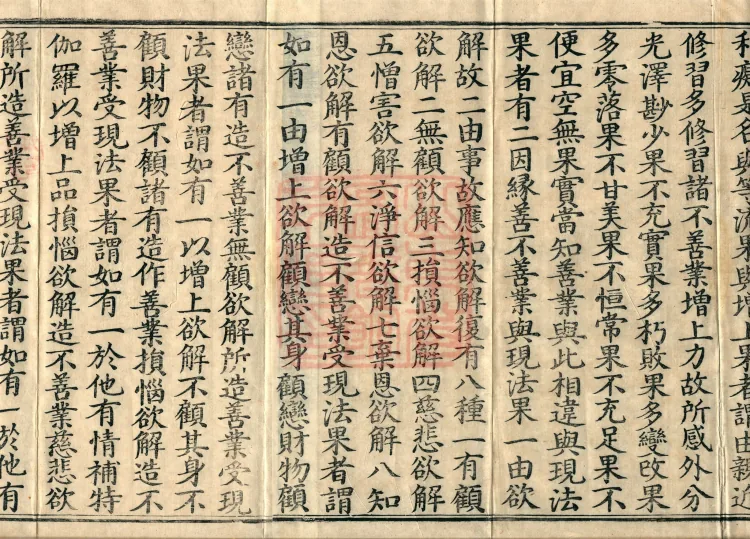 名與等流果與增上果者謂由親近
修習多修習諸不善業增上力故所感外分
光澤尠少果不充實果多朽敗果多變改果
多零落果不甘美果不恒常果不充足果不
便宜空無果實當知善業與此相違與現法
果者有二因緣善不善業與現法果一由欲
解故二由事故應知欲解復有八種一有顧
欲解二無顧欲解三損惱欲解四慈悲欲解
五憎害欲解六淨信欲解七棄恩欲解八知
恩欲解有顧欲解造不善業受現法果者謂
如有一由增上欲解顧戀其身顧戀財物顧
戀諸有造不善業無顧欲解所造善業受現
法果者謂如有一以增上欲解不顧其身不
顧財物不顧諸有造作善業損惱欲解造不
善業受現法果者謂如有一於他有情補特
伽羅以增上品損惱欲解造不善業慈悲欲
解所造善業受現法果者謂如有一於他有